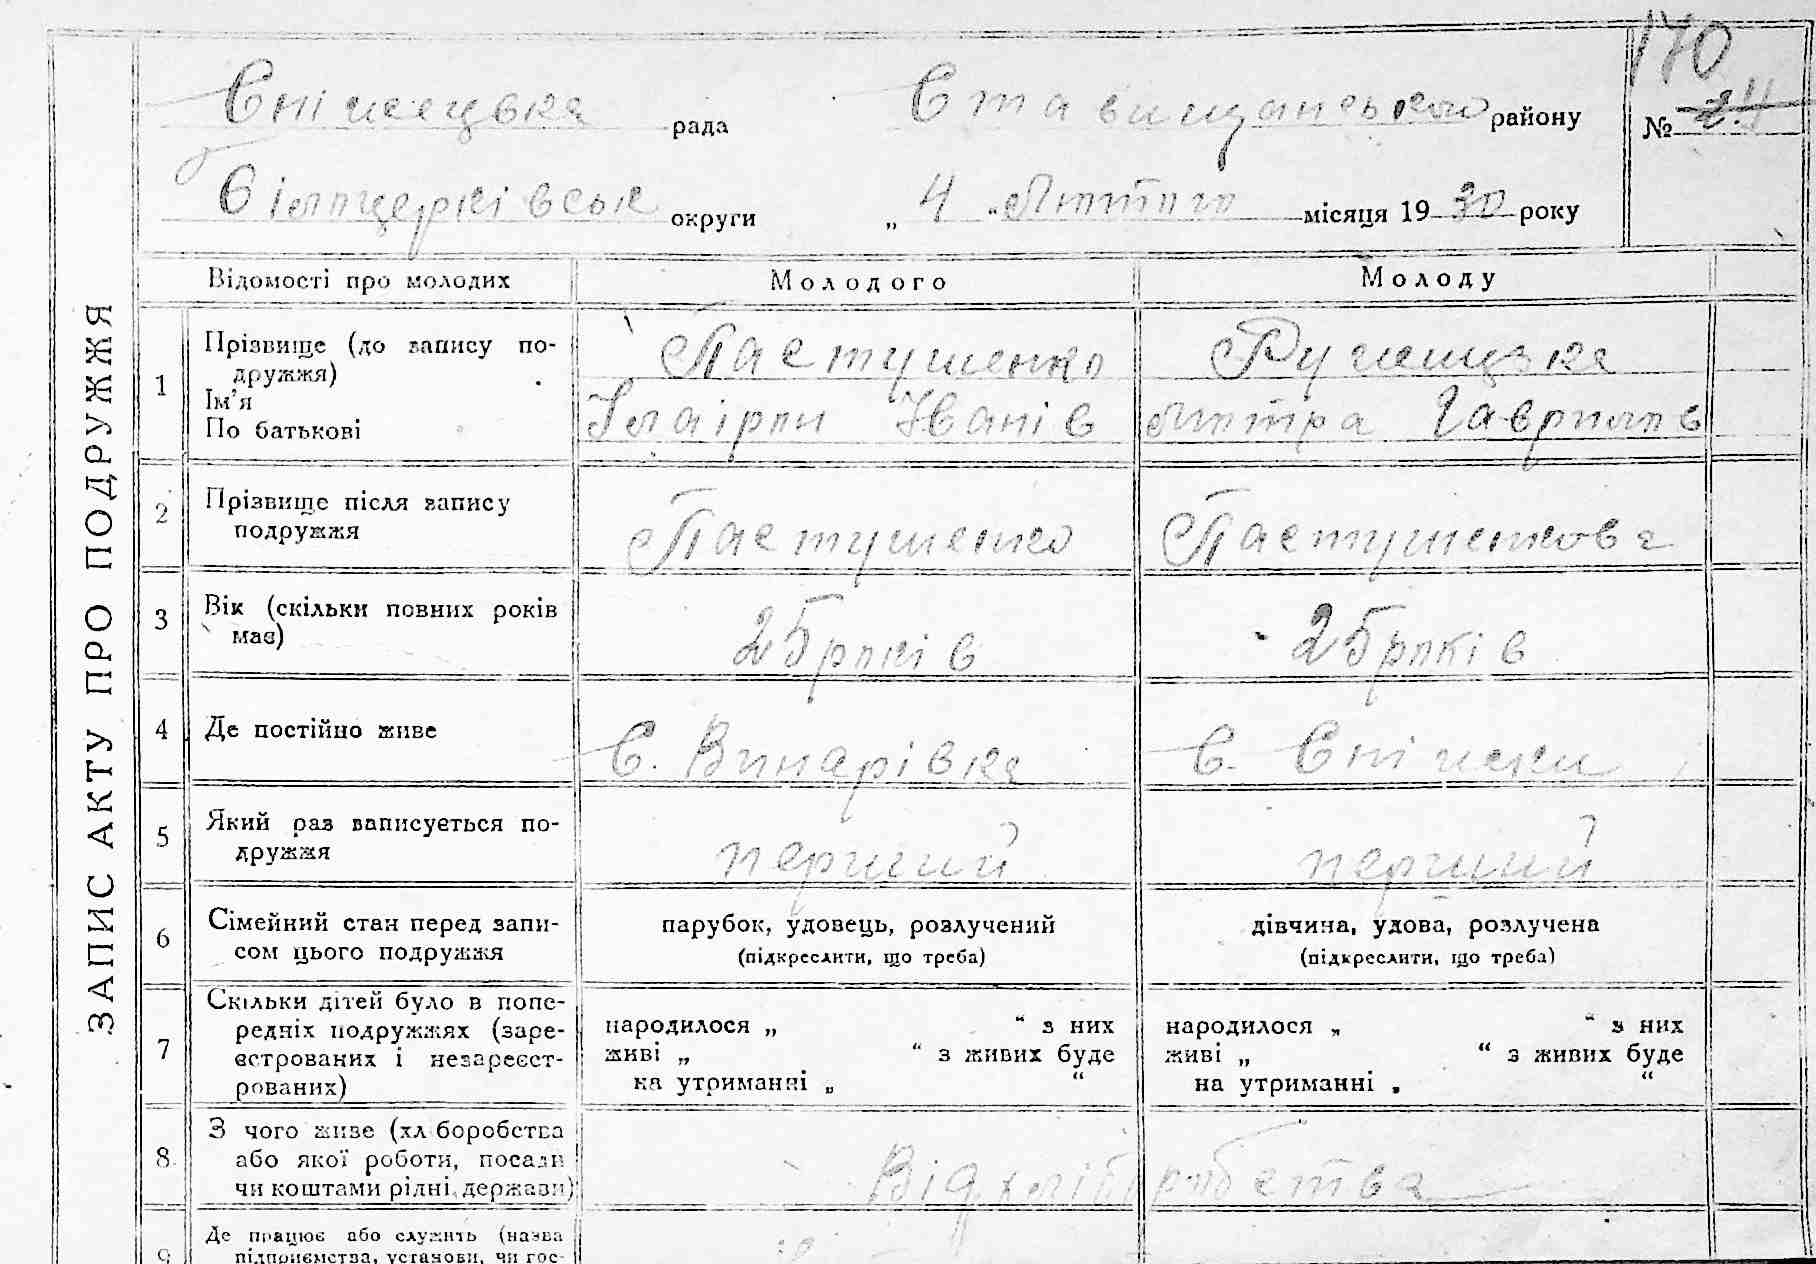 170
Сніжецька рада Ставищанського району № 24
Білоцерківськ округи „ 4 “ Лютого місяця 19 30 року
ЗАПИС АКТУ ПРО ПОДРУЖЖЯ
Відомості про молодих Молодого Молоду
1 Прізвище (до запису по- Пастушенко
дружжя)
Ім’я Іларіон Іванів Гаврилов
По батькові
2 Прізвище після запису Пастушенко Пастушенкова
подружжя
3 Вік (скільки повних років 25 років 25 років
має)
4 Де постійно живе С. Винарівка С. Сніжки
5 Який раз записується по- перший перший
дружжя
6 Сімейний стан перед запи- парубок, удовець, розлучений дівчина, удова, розлучена
сом цього подружжя (підкреслити, що треба) (підкреслити, що треба)
7 Скільки дітей було в попе-
редніх подружжях (заре- народилося „ “ з них народилося „ “ з них
єстрованих і незареєст- живі „ “ з живих буде живі „ “ з живих буде
рованих) на утриманні „ “ на утриманні „ “
8 З чого живе (хліборобства
або якої роботи, посади Від хліборобства
чи коштами рідні, держави)
9 Де працює або служить (назва
підприємства, установи, чи гос-